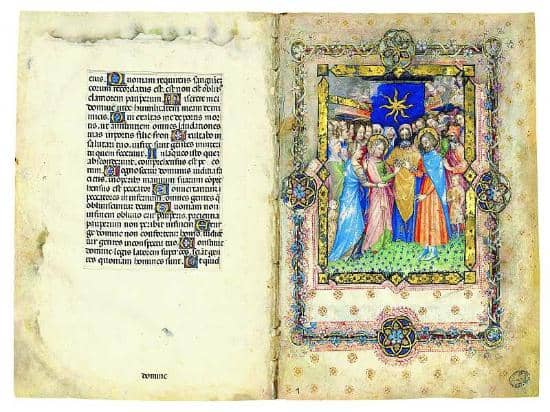 eius. Quoniam requirens sanguinem
eorum recordatus est: non est oblitus
clamorem pauperum. Miserere mei
domine: vide humilitatem meam de in
imicis meis. Qui exaltas me de portis mor
tis: ut annuntiem omnes laudationes
tuas in portis filie syon. Exultabo in
salutari tuo: infixe sunt gentes in interitu
quem fecerunt. In laqueo isto quem
absconderunt: comprehensus est pes
eorum. Cognoscetur dominus iudicia fa
ciens: in operibus manuum suarum compre
hensus est peccator. Convertantur
peccatores in infernum: omnes gentes que
obliviscuntur deum. Quoniam non
in finem oblivio erit pauperis: patientia
pauperum non peribit in finem. Exur
ge domine non confortetur homo: iudicen
tur gentes in conspectu tuo. Constitue
domine legis latorem super eos: sciant gen
tes quoniam homines sunt. Ut quid
domine
1